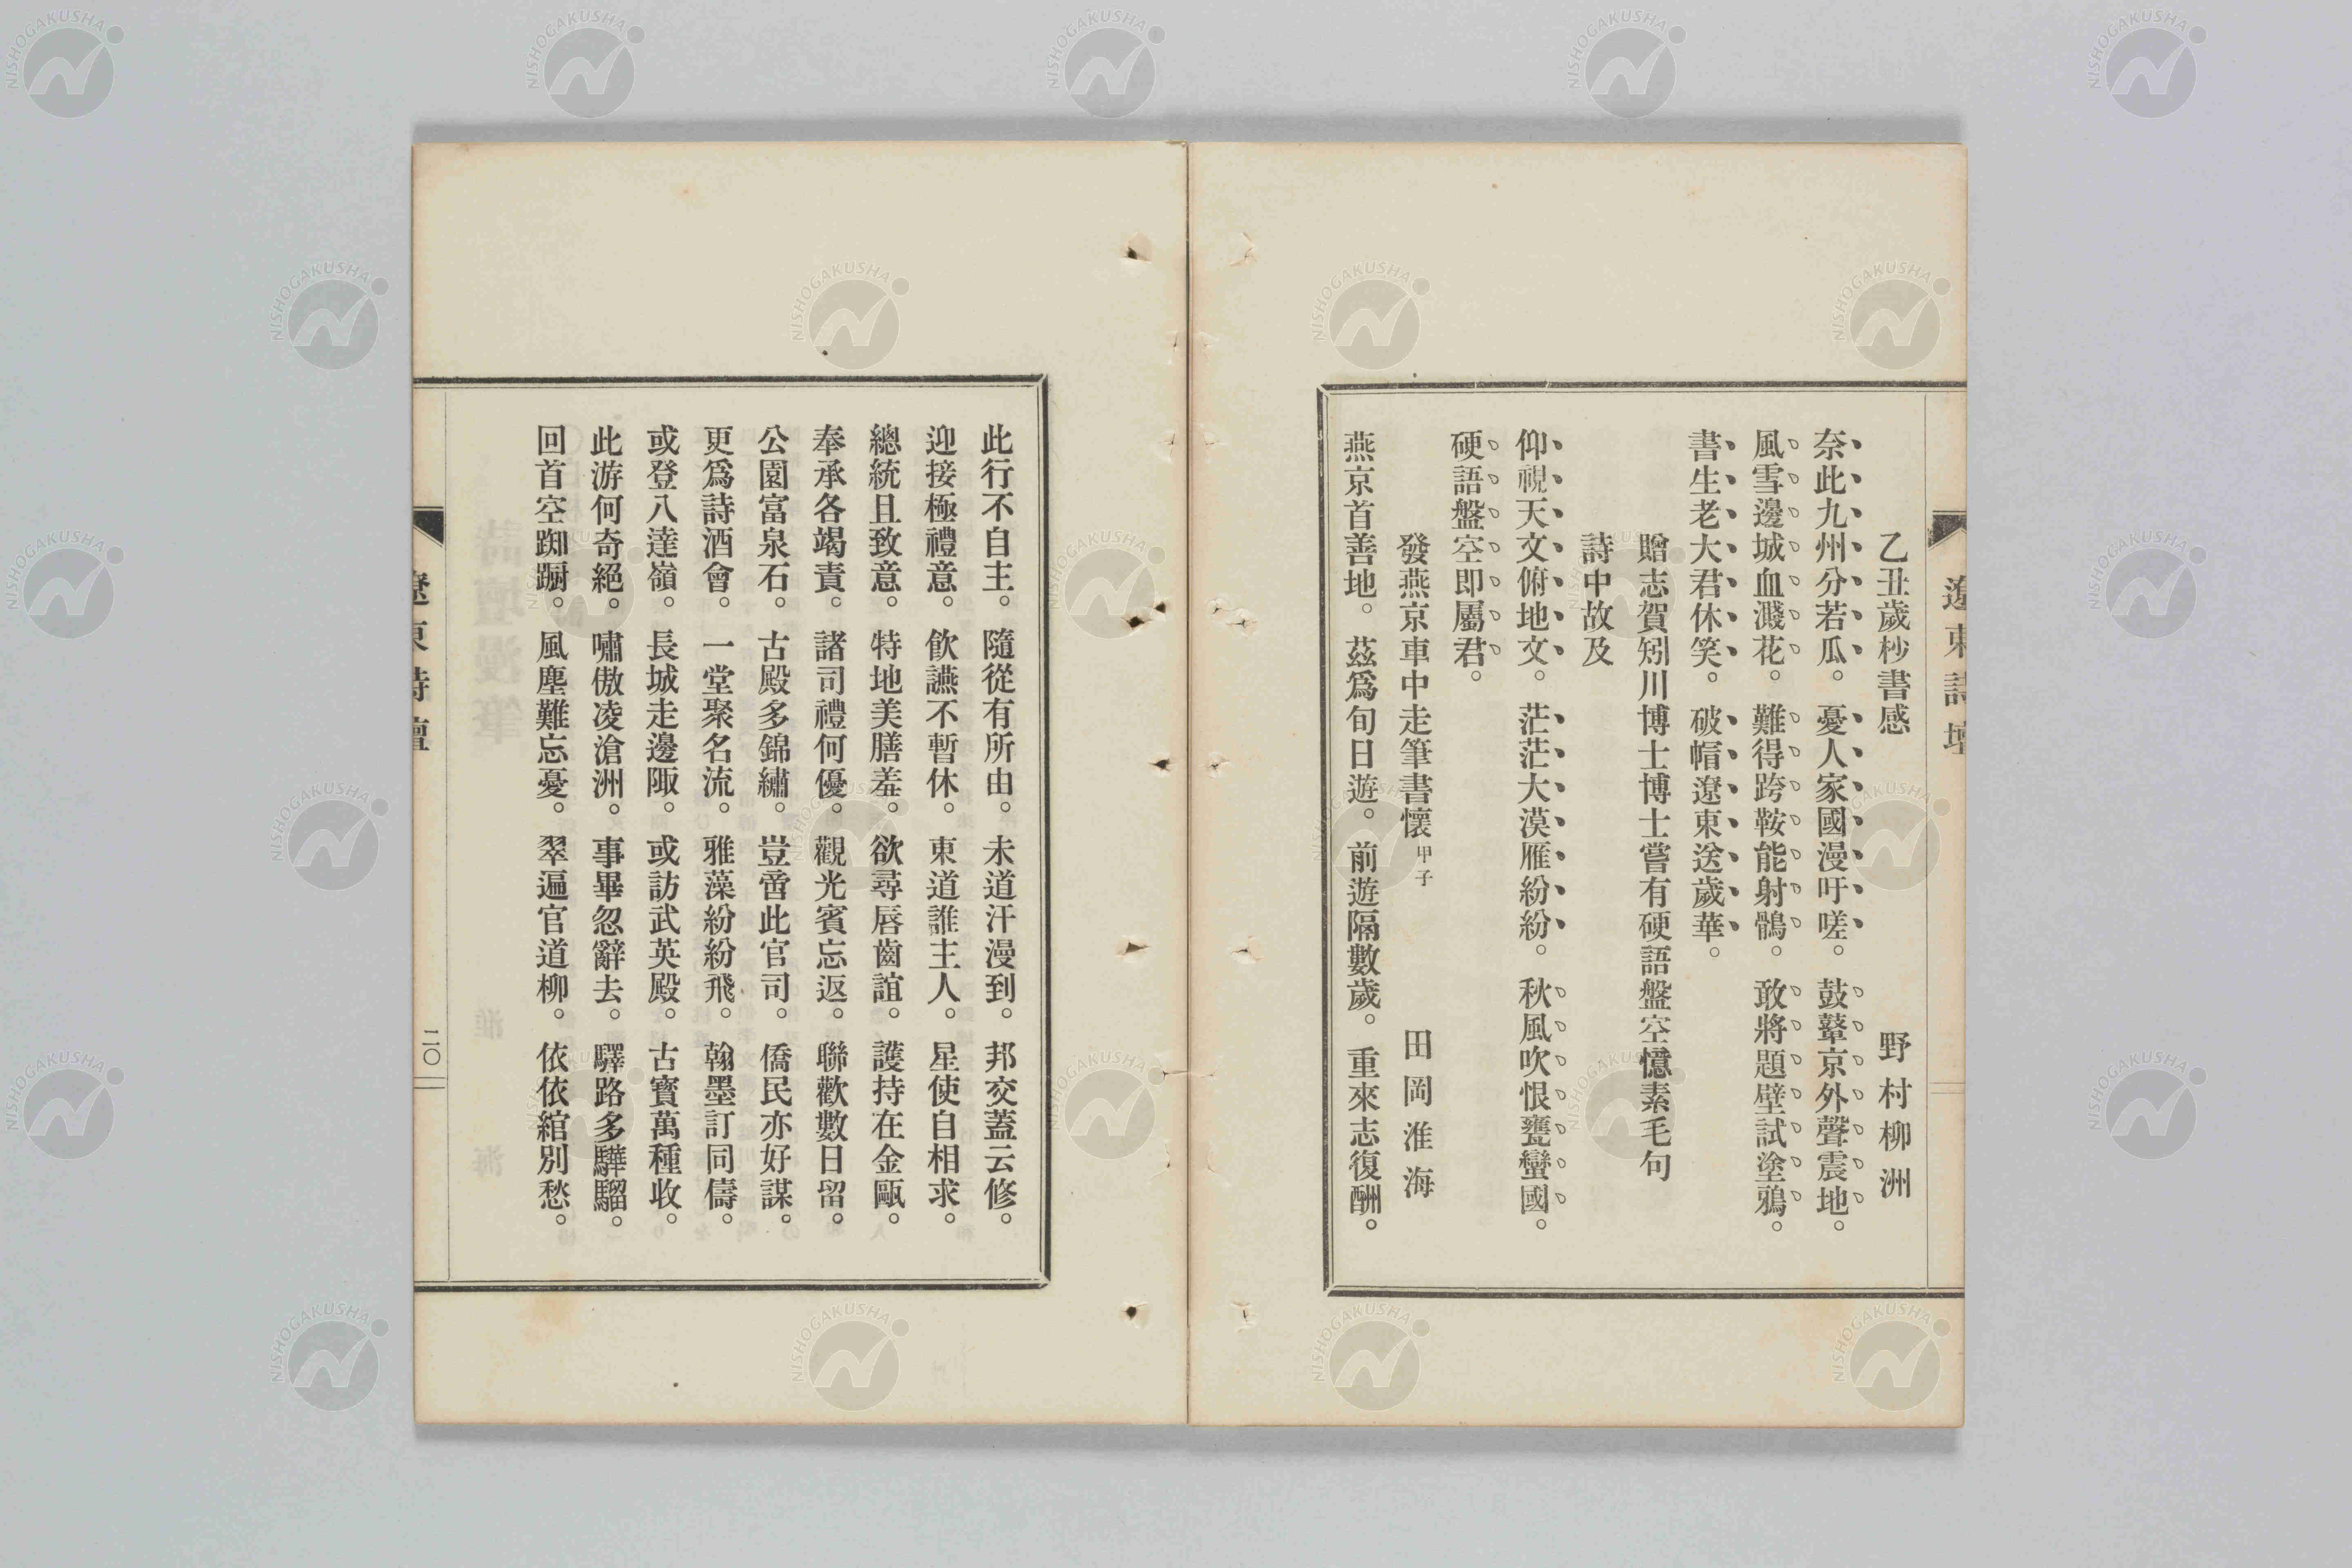 遼東詩壇
乙丑歲杪書感 野村柳洲
奈此九州分若瓜。憂人家國漫吁嗟。鼓鼙京外聲震地。
風雪邊城血濺花。難得跨鞍能射鶻。敢將題壁試塗鴉。
書生老大君休笑。破帽遼東送歲華。
贈志賀矧川博士博士嘗有硬語盤空憶素毛句
詩中故及
仰視天文俯地文。茫茫大漠雁紛紛。秋風吹恨甕蠻國。
硬語盤空即屬君。
發燕京車中走筆書懷 甲子 田岡淮海
燕京首善地。茲爲旬日遊。前遊隔數歲。重來志復酬。
此行不自主。隨從有所由。未道汗漫到。邦交蓋云修。
迎接極禮意。飲讌不暫休。東道誰主人。星使自相求。
總統且致意。特地美膳羞。欲尋唇齒誼。護持在金甌。
奉承各竭責。諸司禮何優。觀光賓忘返。聯歡數日留。
公園富泉石。古殿多錦繡。豈啻此官司。僑民亦好謀。
更爲詩酒會。一堂聚名流。雅藻紛紛飛。翰墨訂同儔。
或登八達嶺。長城走邊陬。或訪武英殿。古寳萬種收。
此游何奇絕。嘯傲凌滄洲。事畢忽辭去。驛路多驊騮。
回首空踟蹰。風塵難忘憂。翠遍官道柳。依依綰別愁。
遼東詩壇
二〇
NISHOGAKUSHA